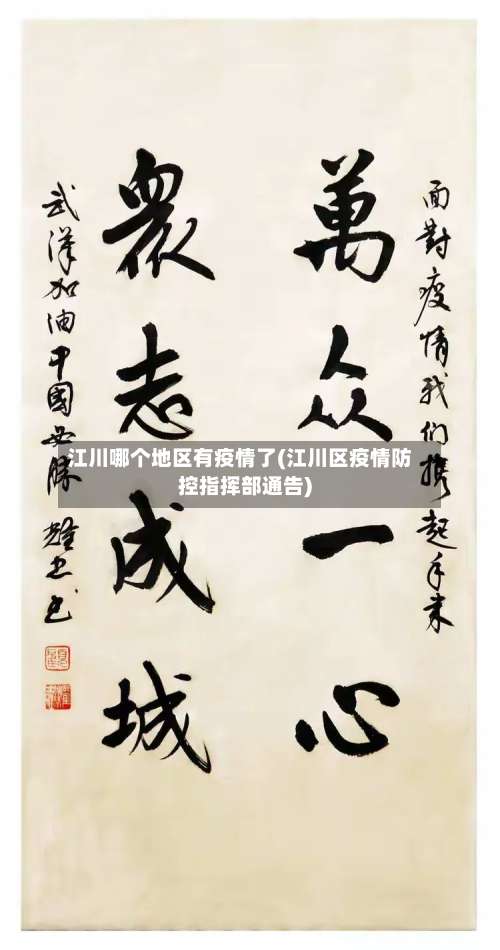 面對疫情我们携起手来
萬众一心
眾志成城
武漢加油中國必勝
江川哪个地区有疫情了(江川区疫情防
控指挥部通告)